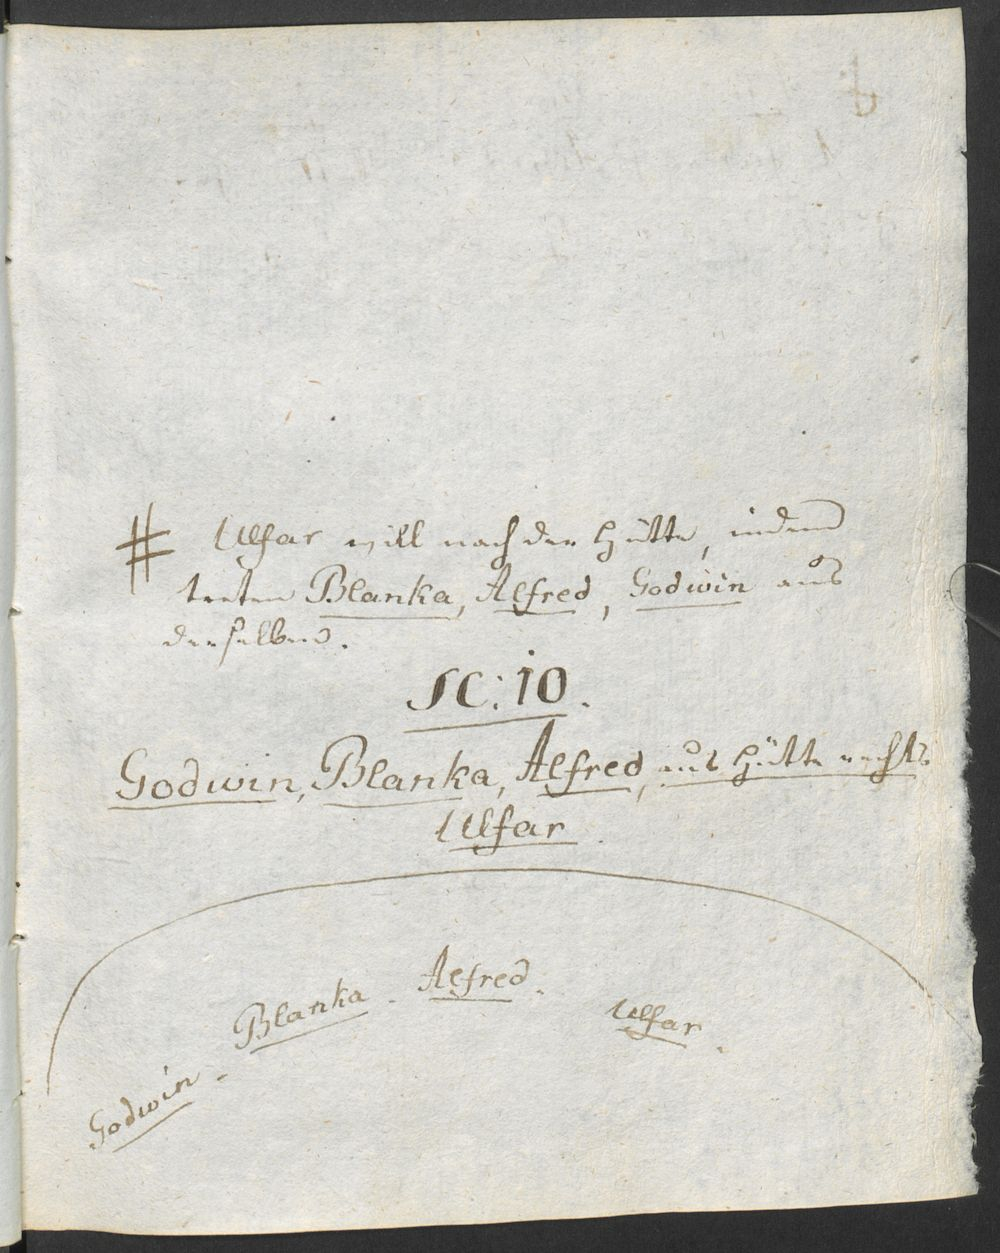 # Ulfar will nach der Hütte, indem
treten Blanka, Alfred, Godwin aus
derselben.
SC: 10.
Godwin, Blanka, Alfred, aus Hütte rechts
Ulfar
Alfred.
Blanka -
Ulfar.
Godwin -